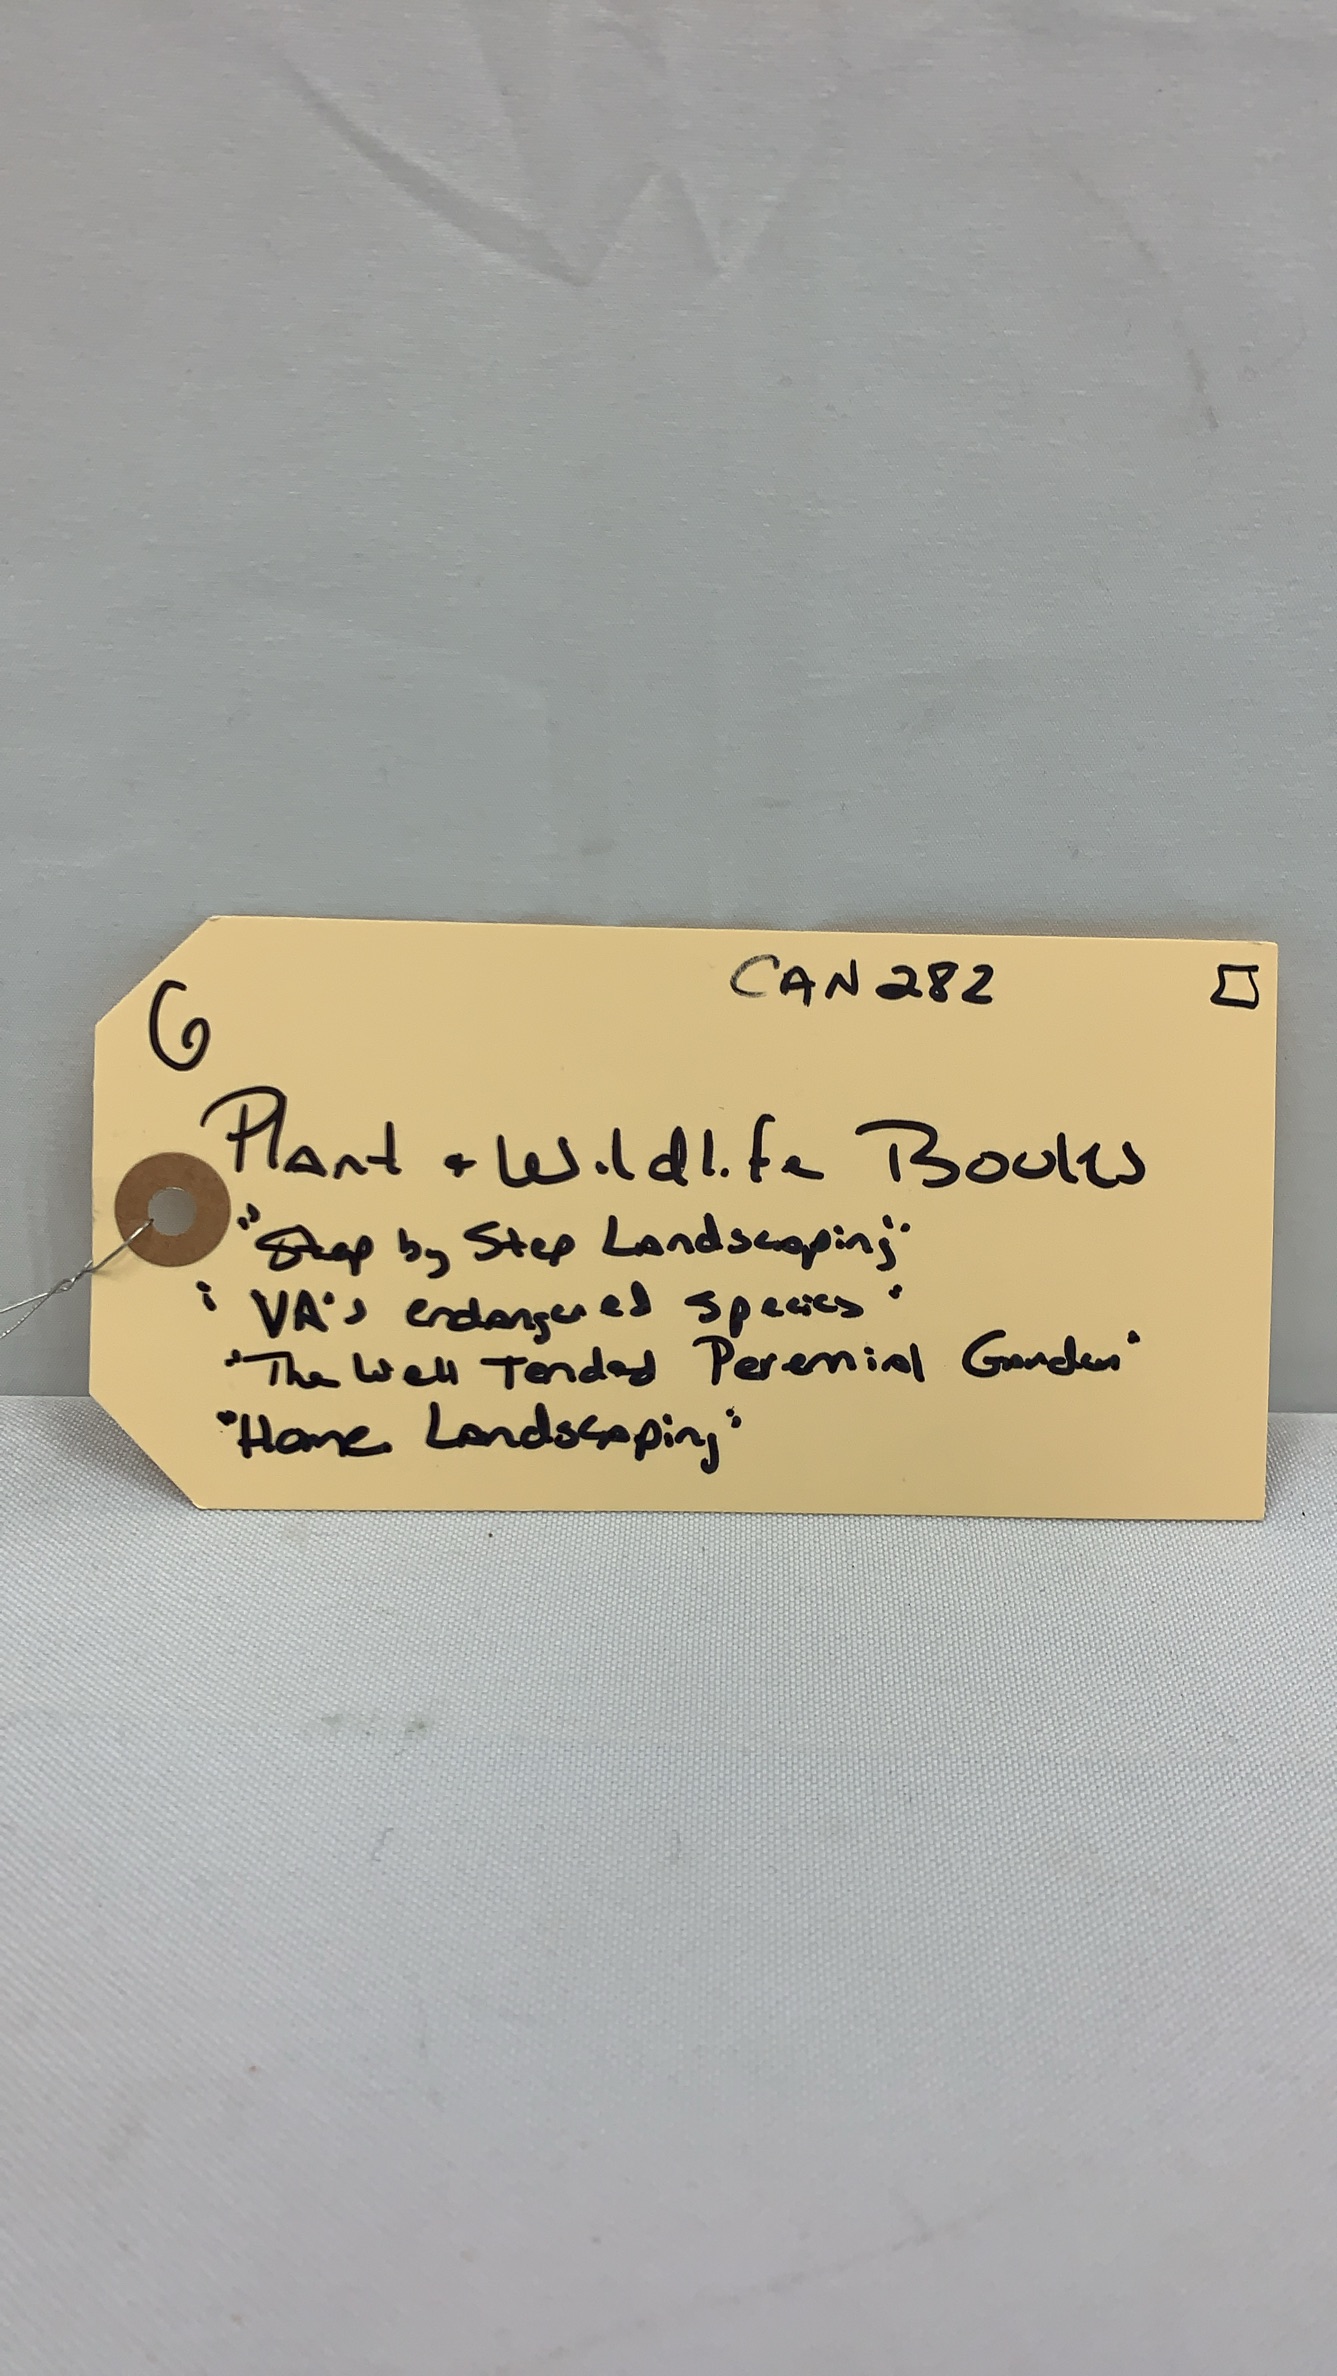 CAN 282
6
Plant + Wildlife Books
"Step by Step Landscaping"
"VA's endangered species"
"The Well Tended Perennial Garden"
"Home Landscaping"